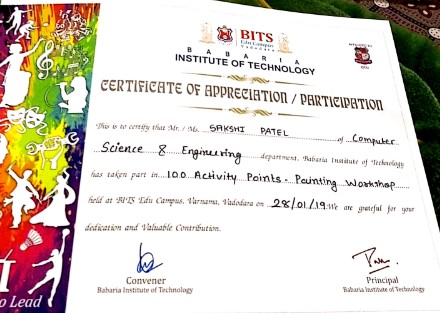 BITS
Edu Campus
Vadodara
BABARIA
INSTITUTE OF TECHNOLOGY
CERTIFICATE OF APPRECIATION / PARTICIPATION
This is to certify that Mr. / Ms. SAKSHI PATEL of Computer
Science & Engineering department, Babaria Institute of Technology
has taken part in 100 Activity Points - Painting Workshop
held at BITS Edu Campus, Varnama, Vadodara on 28/01/19. We are grateful for your
dedication and Valuable Contribution.
Convener Principal
Babaria Institute of Technology Babaria Institute of Technology
o Lead